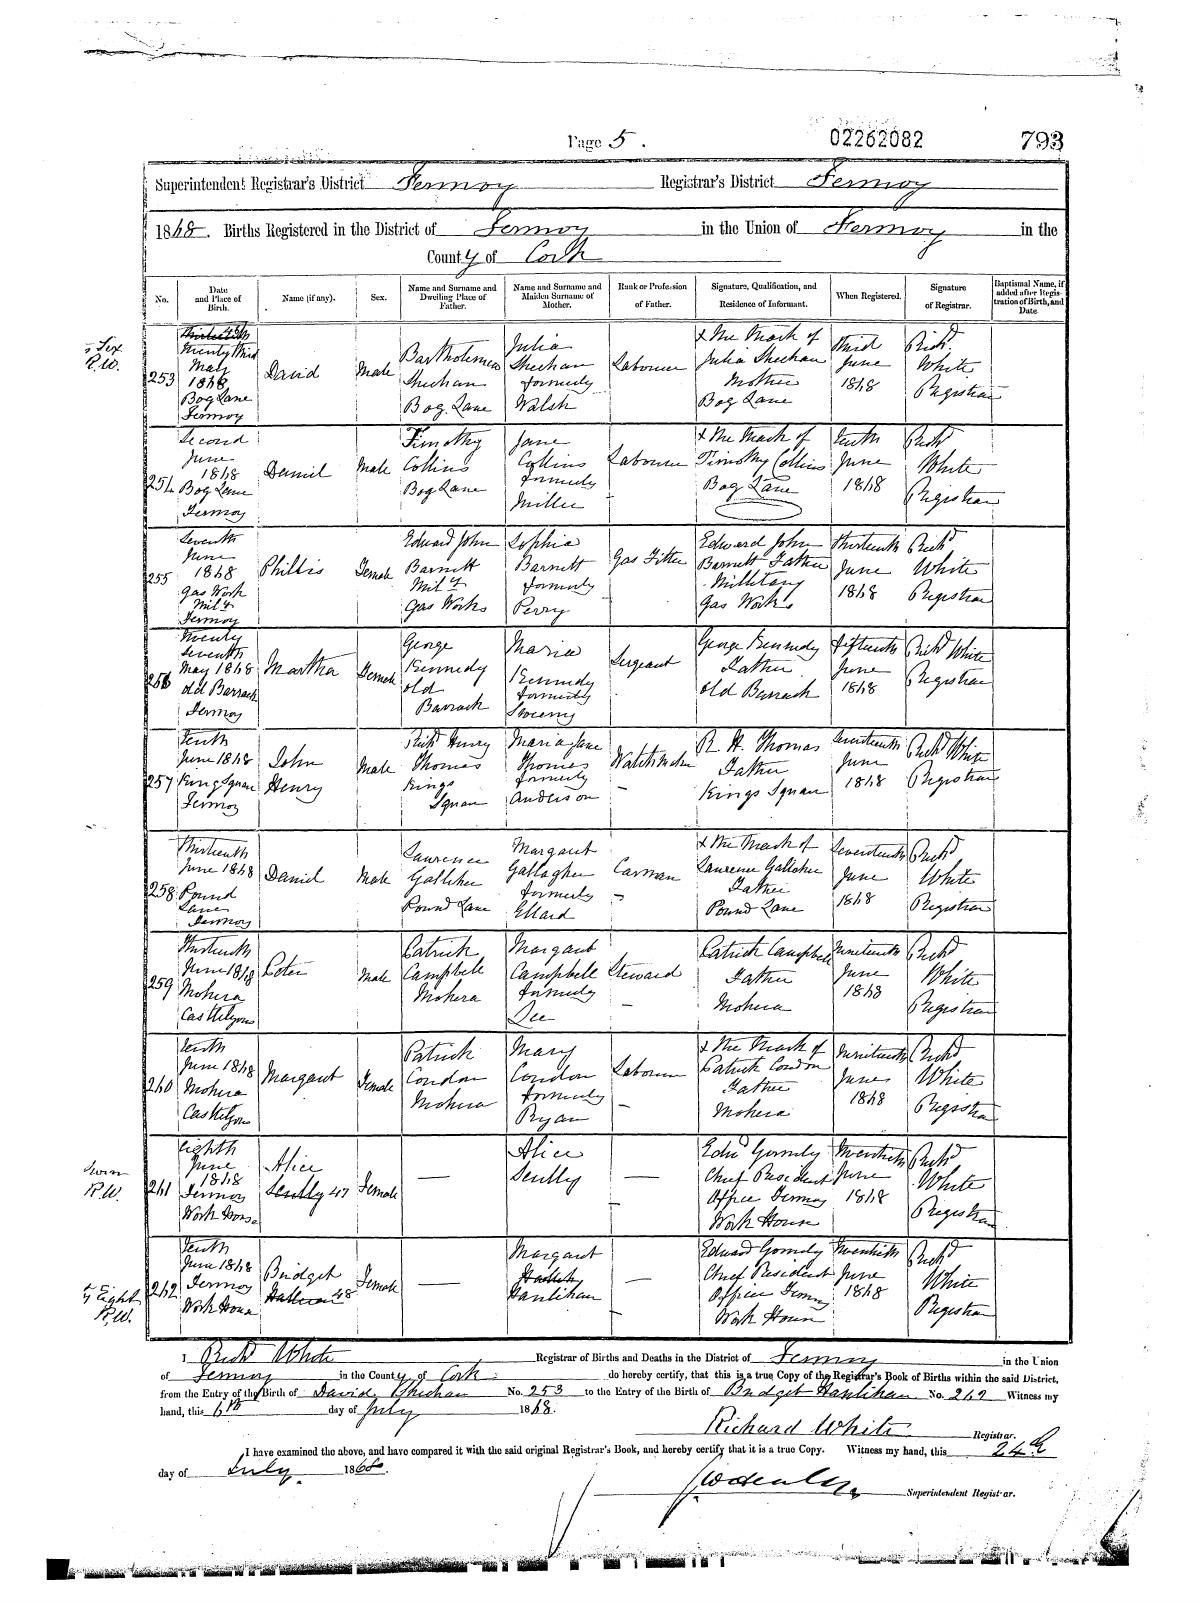 Page 5.
02262082
793
Superintendent Registrar's District Fermoy Registrar's District Fermoy
1868. Births Registered in the District of Fermoy in the Union of Fermoy in the
County of Cork
No. Date and Place of Birth. Name (if any). Sex. Name and Surname and Dwelling Place of Father. Name and Surname and Maiden Surname of Mother. Rank or Profession of Father. Signature, Qualification, and Residence of Informant. When Registered. Signature of Registrar. Baptismal Name, if added after Registration of Birth, and Date.
Six R.W.
253 Thirteenth Twenty third May 1868 Bog Lane Fermoy David Male Bartholomew Sheehan Bog Lane Julia Sheehan formerly Walsh Labourer x The Mark of Julia Sheehan Mother Bog Lane Third June 1868 Richd White Registrar
254 Second June 1868 Bog Lane Fermoy Daniel Male Timothy Collins Bog Lane Jane Collins formerly Miller Labourer x The Mark of Timothy Collins Bog Lane Tenth June 1868 Richd White Registrar
255 Seventh June 1868 Gas Work Mily Fermoy Phillis Female Edward John Barnett Mily Gas Works Sophia Barnett formerly Perry Gas Fitter Edward John Barnett Father Millitary Gas Works Thirteenth June 1868 Richd White Registrar
256 Twenty Seventh May 1868 Old Barrack Fermoy Martha Female George Kennedy Old Barrack Maria Kennedy formerly Sweeny Sergeant George Kennedy Father Old Barrack Fifteenth June 1868 Richd White Registrar
257 Tenth June 1868 King Square Fermoy John Henry Male Richd Henry Thomas Kings Square Maria Jane Thomas formerly Anderson Watchmaker R. H. Thomas Father Kings Square Seventeenth June 1868 Richd White Registrar
258 Thirteenth June 1868 Pound Lane Fermoy Daniel Male Laurence Galliher Pound Lane Margaret Gallagher formerly Ellard Carman x The Mark of Laurence Galliher Father Pound Lane Seventeenth June 1868 Richd White Registrar
259 Thirteenth June 1868 Mohera Castlelyons Peter Male Patrick Campbell Mohera Margaret Campbell formerly Lee Steward Patrick Campbell Father Mohera Nineteenth June 1868 Richd White Registrar
260 Tenth June 1868 Mohera Castlelyons Margaret Female Patrick Condon Mohera Mary Condon formerly Ryan Labourer x The Mark of Patrick Condon Father Mohera Nineteenth June 1868 Richd White Registrar
Seven R.W.
261 Eighth June 1868 Fermoy Work House Alice Scully 47 Female — Alice Scully — Edwd Gormly Chief Resident Officer Fermoy Work House Twentieth June 1868 Richd White Registrar
Eight R.W.
262 Tenth June 1868 Fermoy Work House Bridget 48 Female — Margaret Hanlihan — Edward Gormly Chief Resident Officer Fermoy Work House Twentieth June 1868 Richd White Registrar
I Richd White Registrar of Births and Deaths in the District of Fermoy in the Union
of Fermoy in the County of Cork do hereby certify, that this is a true Copy of the Registrar's Book of Births within the said District,
from the Entry of the Birth of David Sheehan No. 253 to the Entry of the Birth of Bridget Hanlihan No. 262 Witness my
hand, this 6th day of July 1868.
Richard White Registrar.
I have examined the above, and have compared it with the said original Registrar's Book, and hereby certify that it is a true Copy. Witness my hand, this 24th
day of July 1868.
Superintendent Registrar.